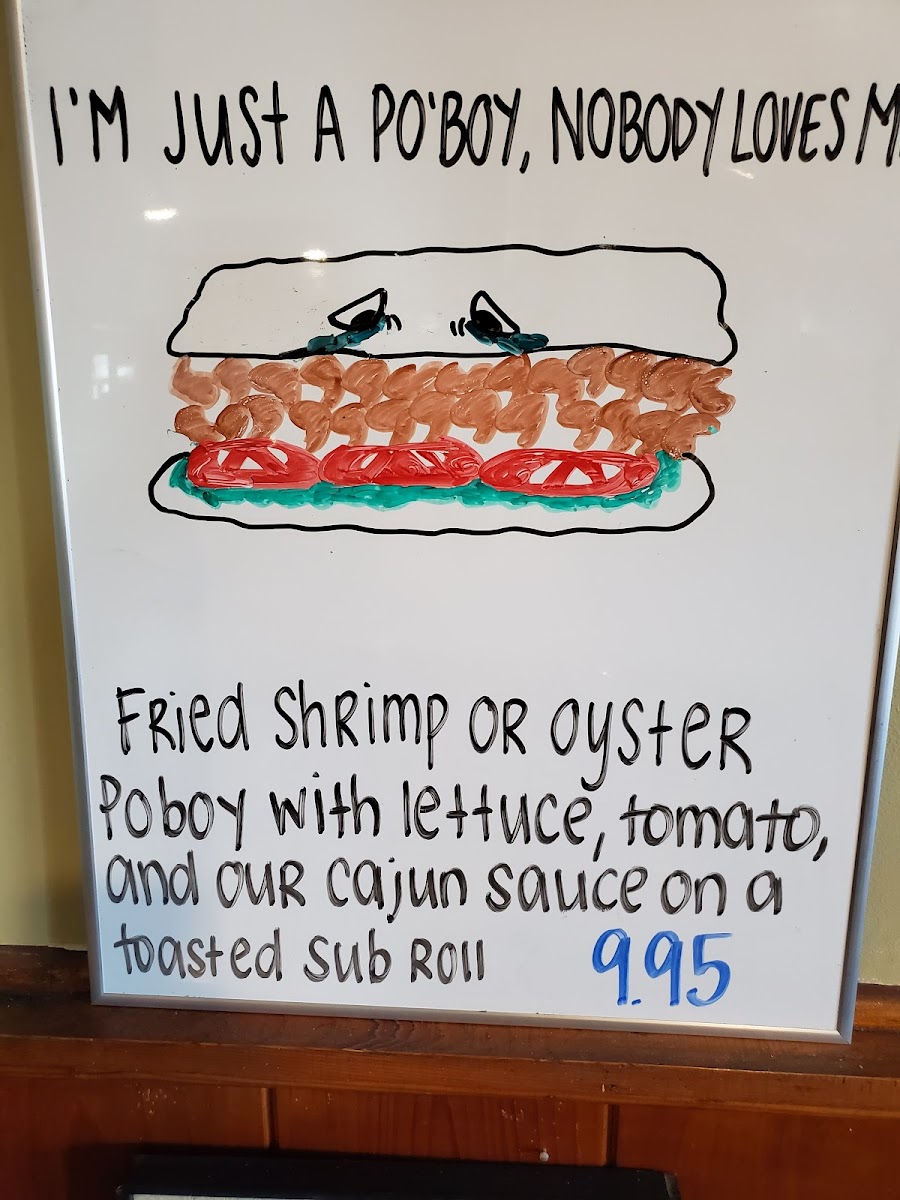 I'M JUST A PO'BOY, NOBODY LOVES M
Fried Shrimp OR Oyster
Poboy with lettuce, tomato,
and our Cajun sauce on a
toasted Sub Roll 9.95